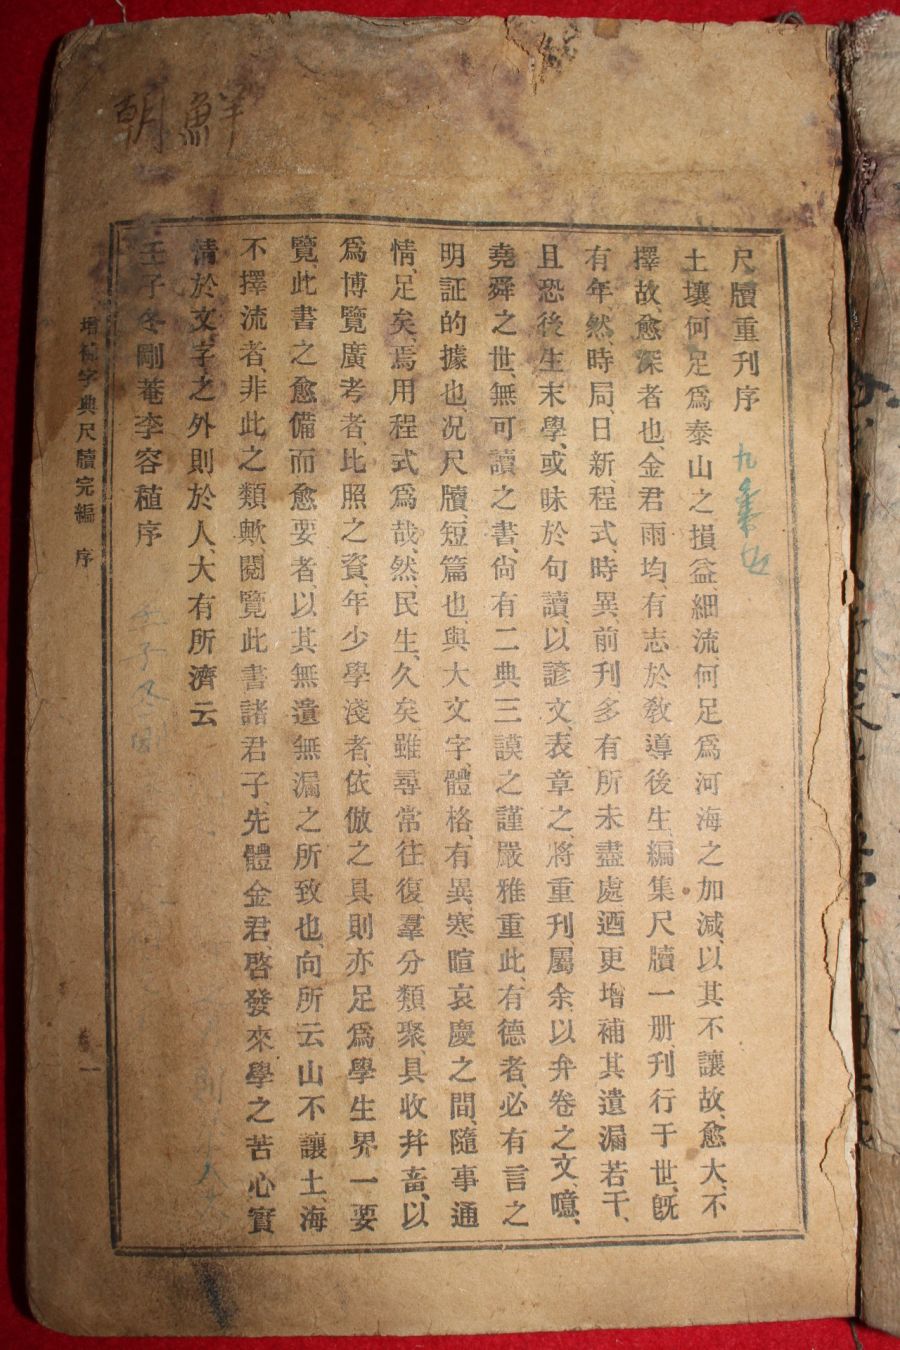 朝鮮
尺牘重刊序
土壤、何足爲泰山之損益、細流、何足爲河海之加減、以其不讓故、愈大、不
擇故、愈深者也、金君雨均有志於敎導後生、編集尺牘一册、刊行于世、旣
有年、然、時局、日新、程式、時異、前刊多有所未盡處、迺更增補其遺漏若干、
且恐後生末學、或昧於句讀、以諺文表章之、將重刊、屬余、以弁卷之文、噫、
堯舜之世、無可讀之書、尙有二典三謨之謹嚴雅重、此、有德者、必有言之
明証的據也、况尺牘、短篇也、與大文字、體格、有異、寒暄哀慶之間、隨事通
情、足矣、焉用程式爲哉、然、民生、久矣、雖尋常往復、羣分類聚、具收幷畜、以
爲博覽廣考者、比照之資、年少學淺者、依倣之具則亦足爲學生界一要
覽、此書之愈備而愈要者、以其無遺無漏之所致也、向所云山不讓土、海
不擇流者、非此之類歟、閱覽此書諸君子、先體金君、啓發來學之苦心、實
淸於文、字之外則於人、大有所濟云
壬子冬剛菴李容稙序
增補字典尺牘完編 序
一
九
壬子冬剛